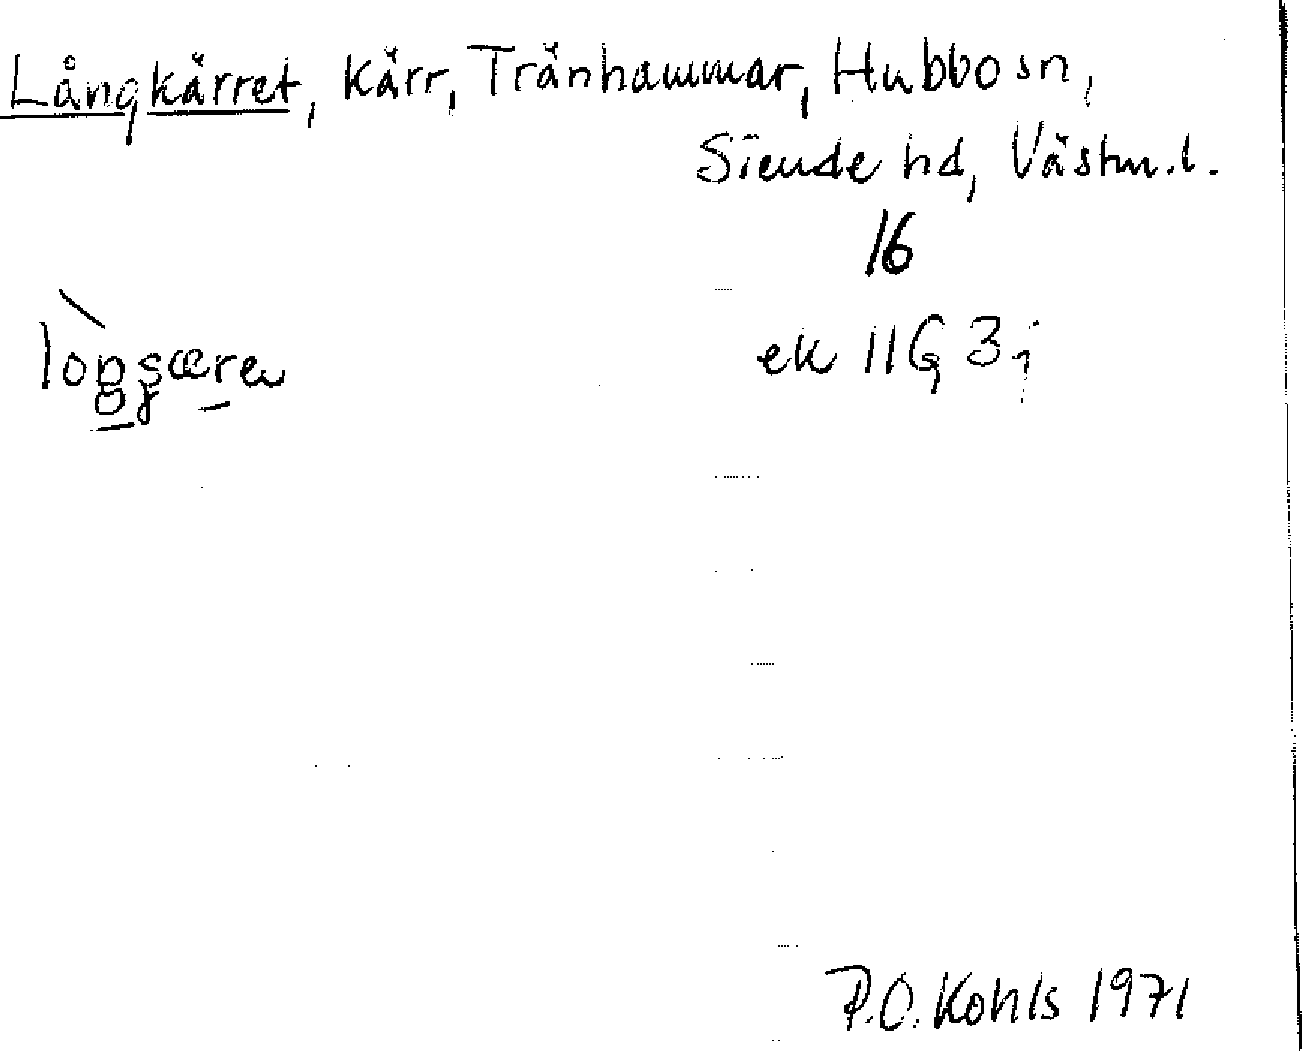 Långkärret, kärr, Tränhammar, Hubbo sn,
Siende hd, Västm.l.
16
ek 11G 3j
P.O. Kohls 1971